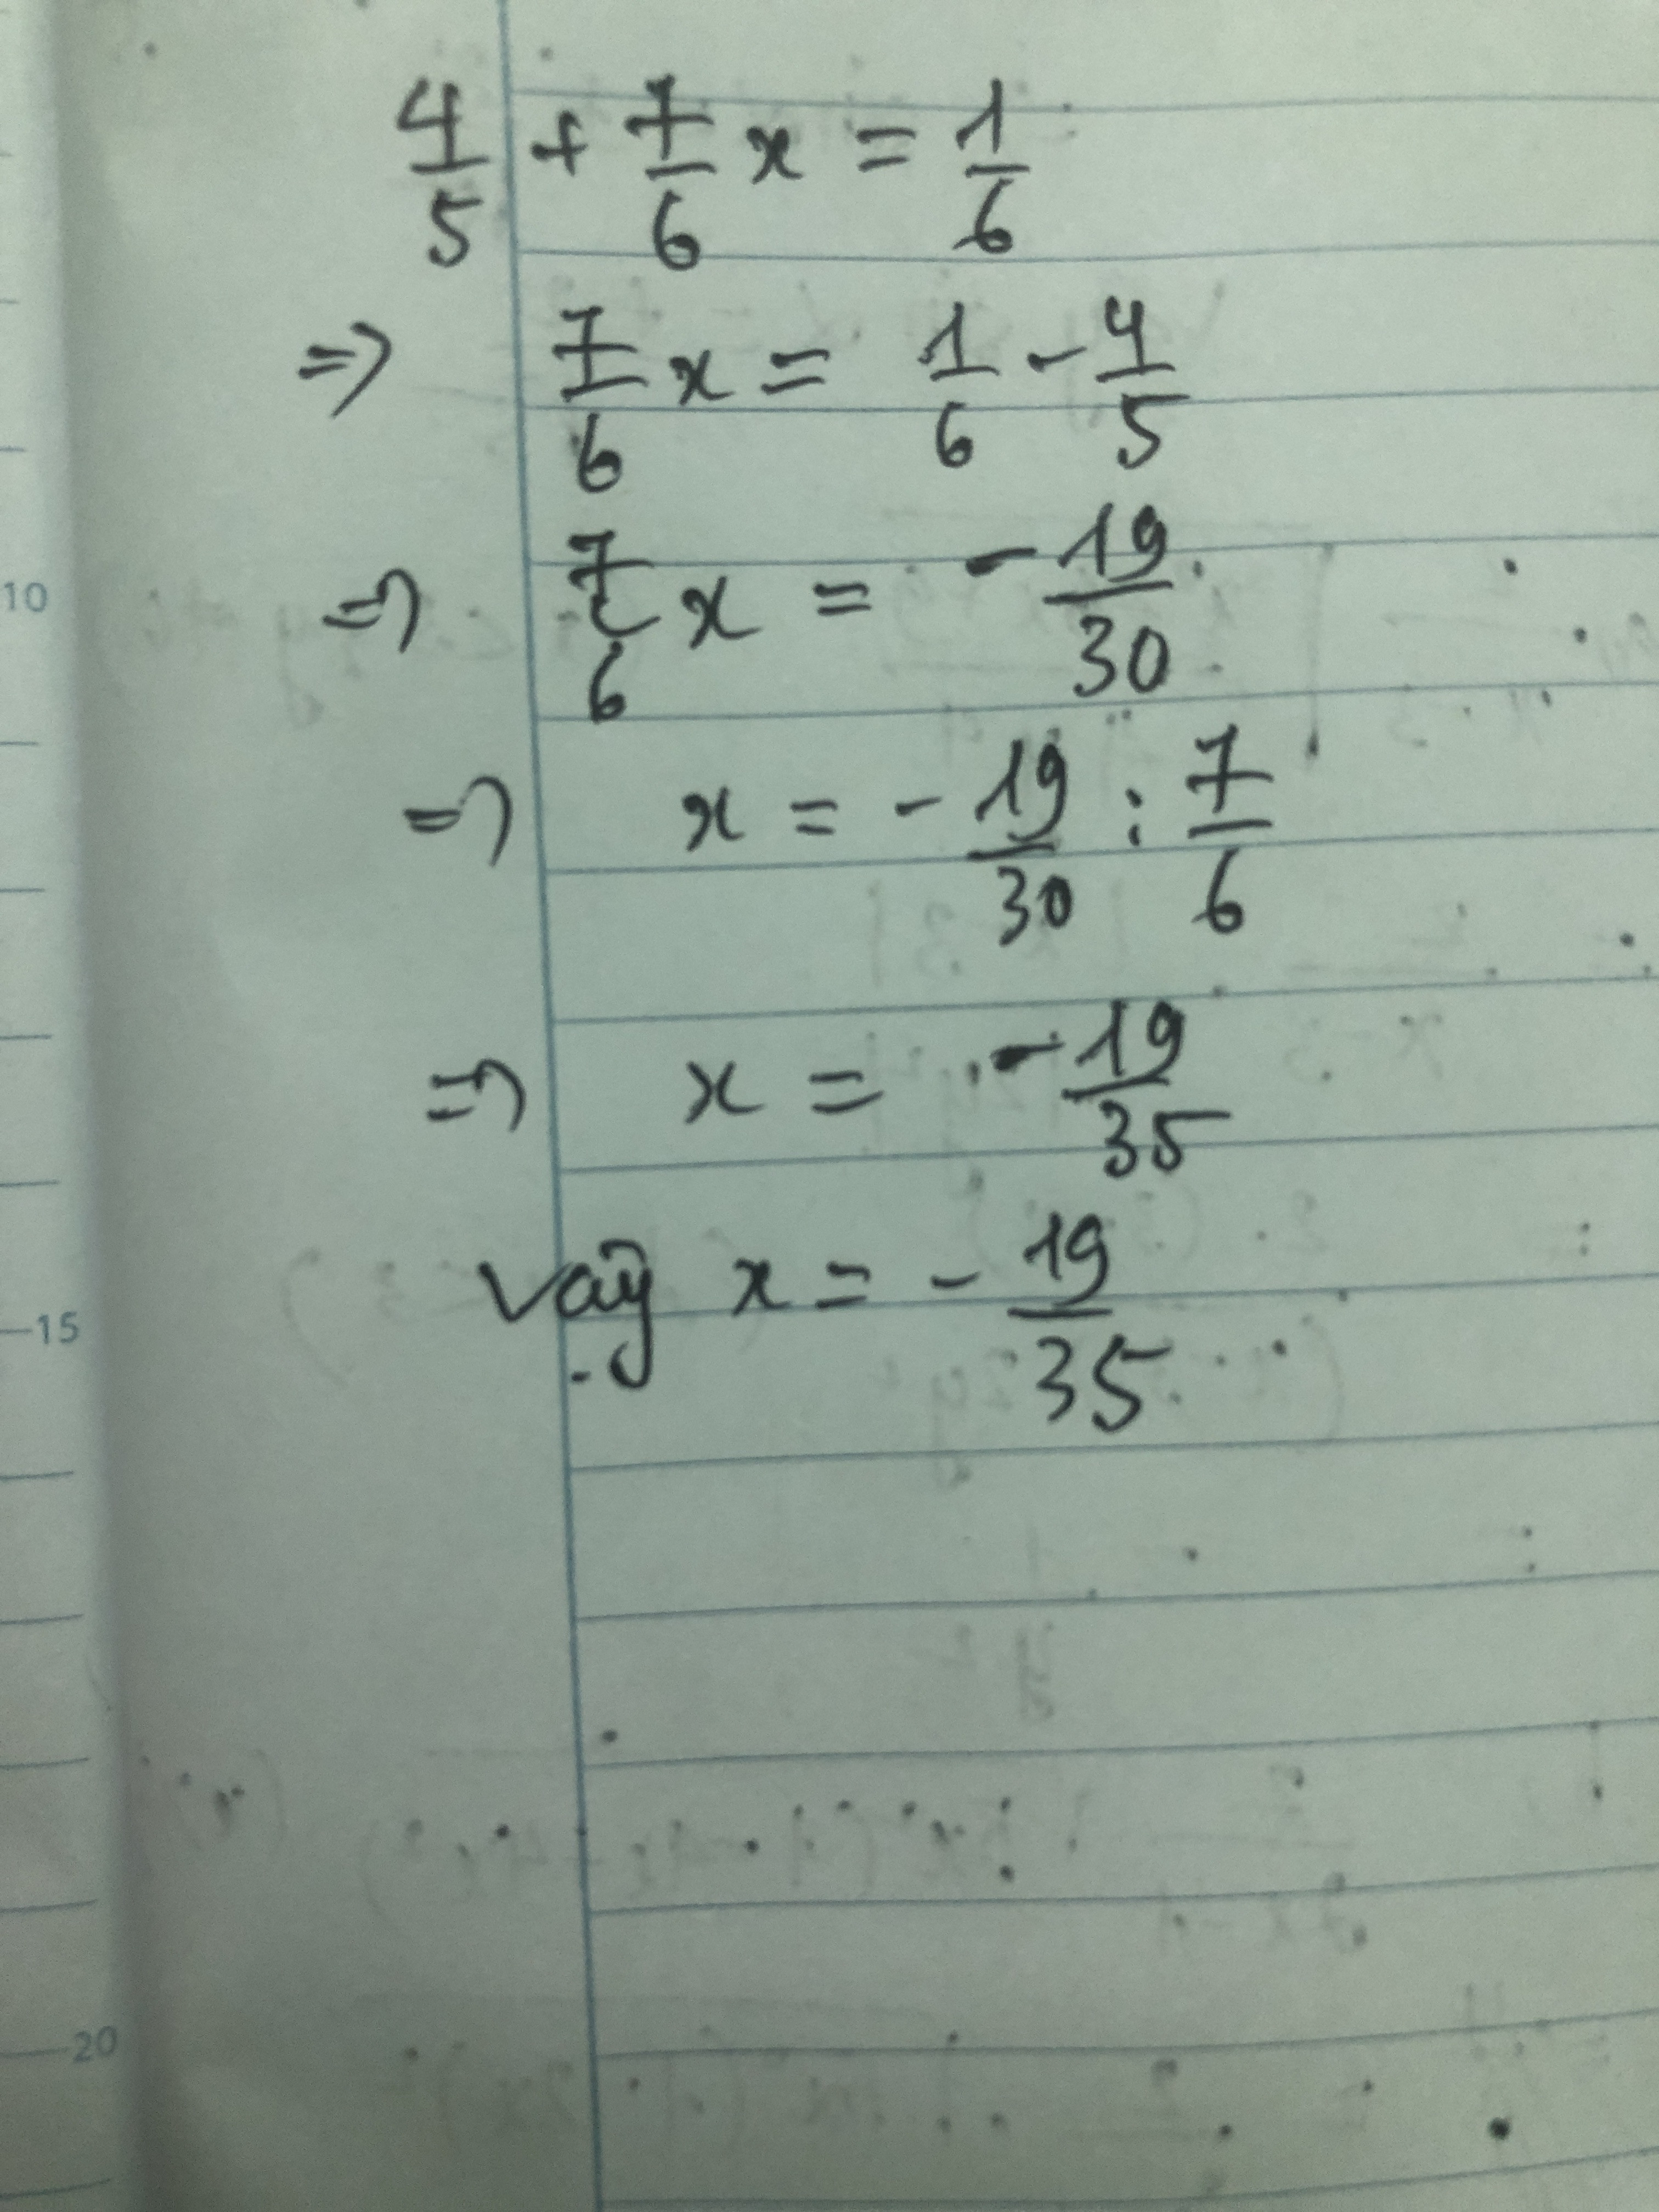 4/5 + 7/6 x = 1/6
=> 7/6 x = 1/6 - 4/5
=> 7/6 x = -19/30
=> x = -19/30 : 7/6
=> x = -19/35
Vậy x = -19/35
10
15
20